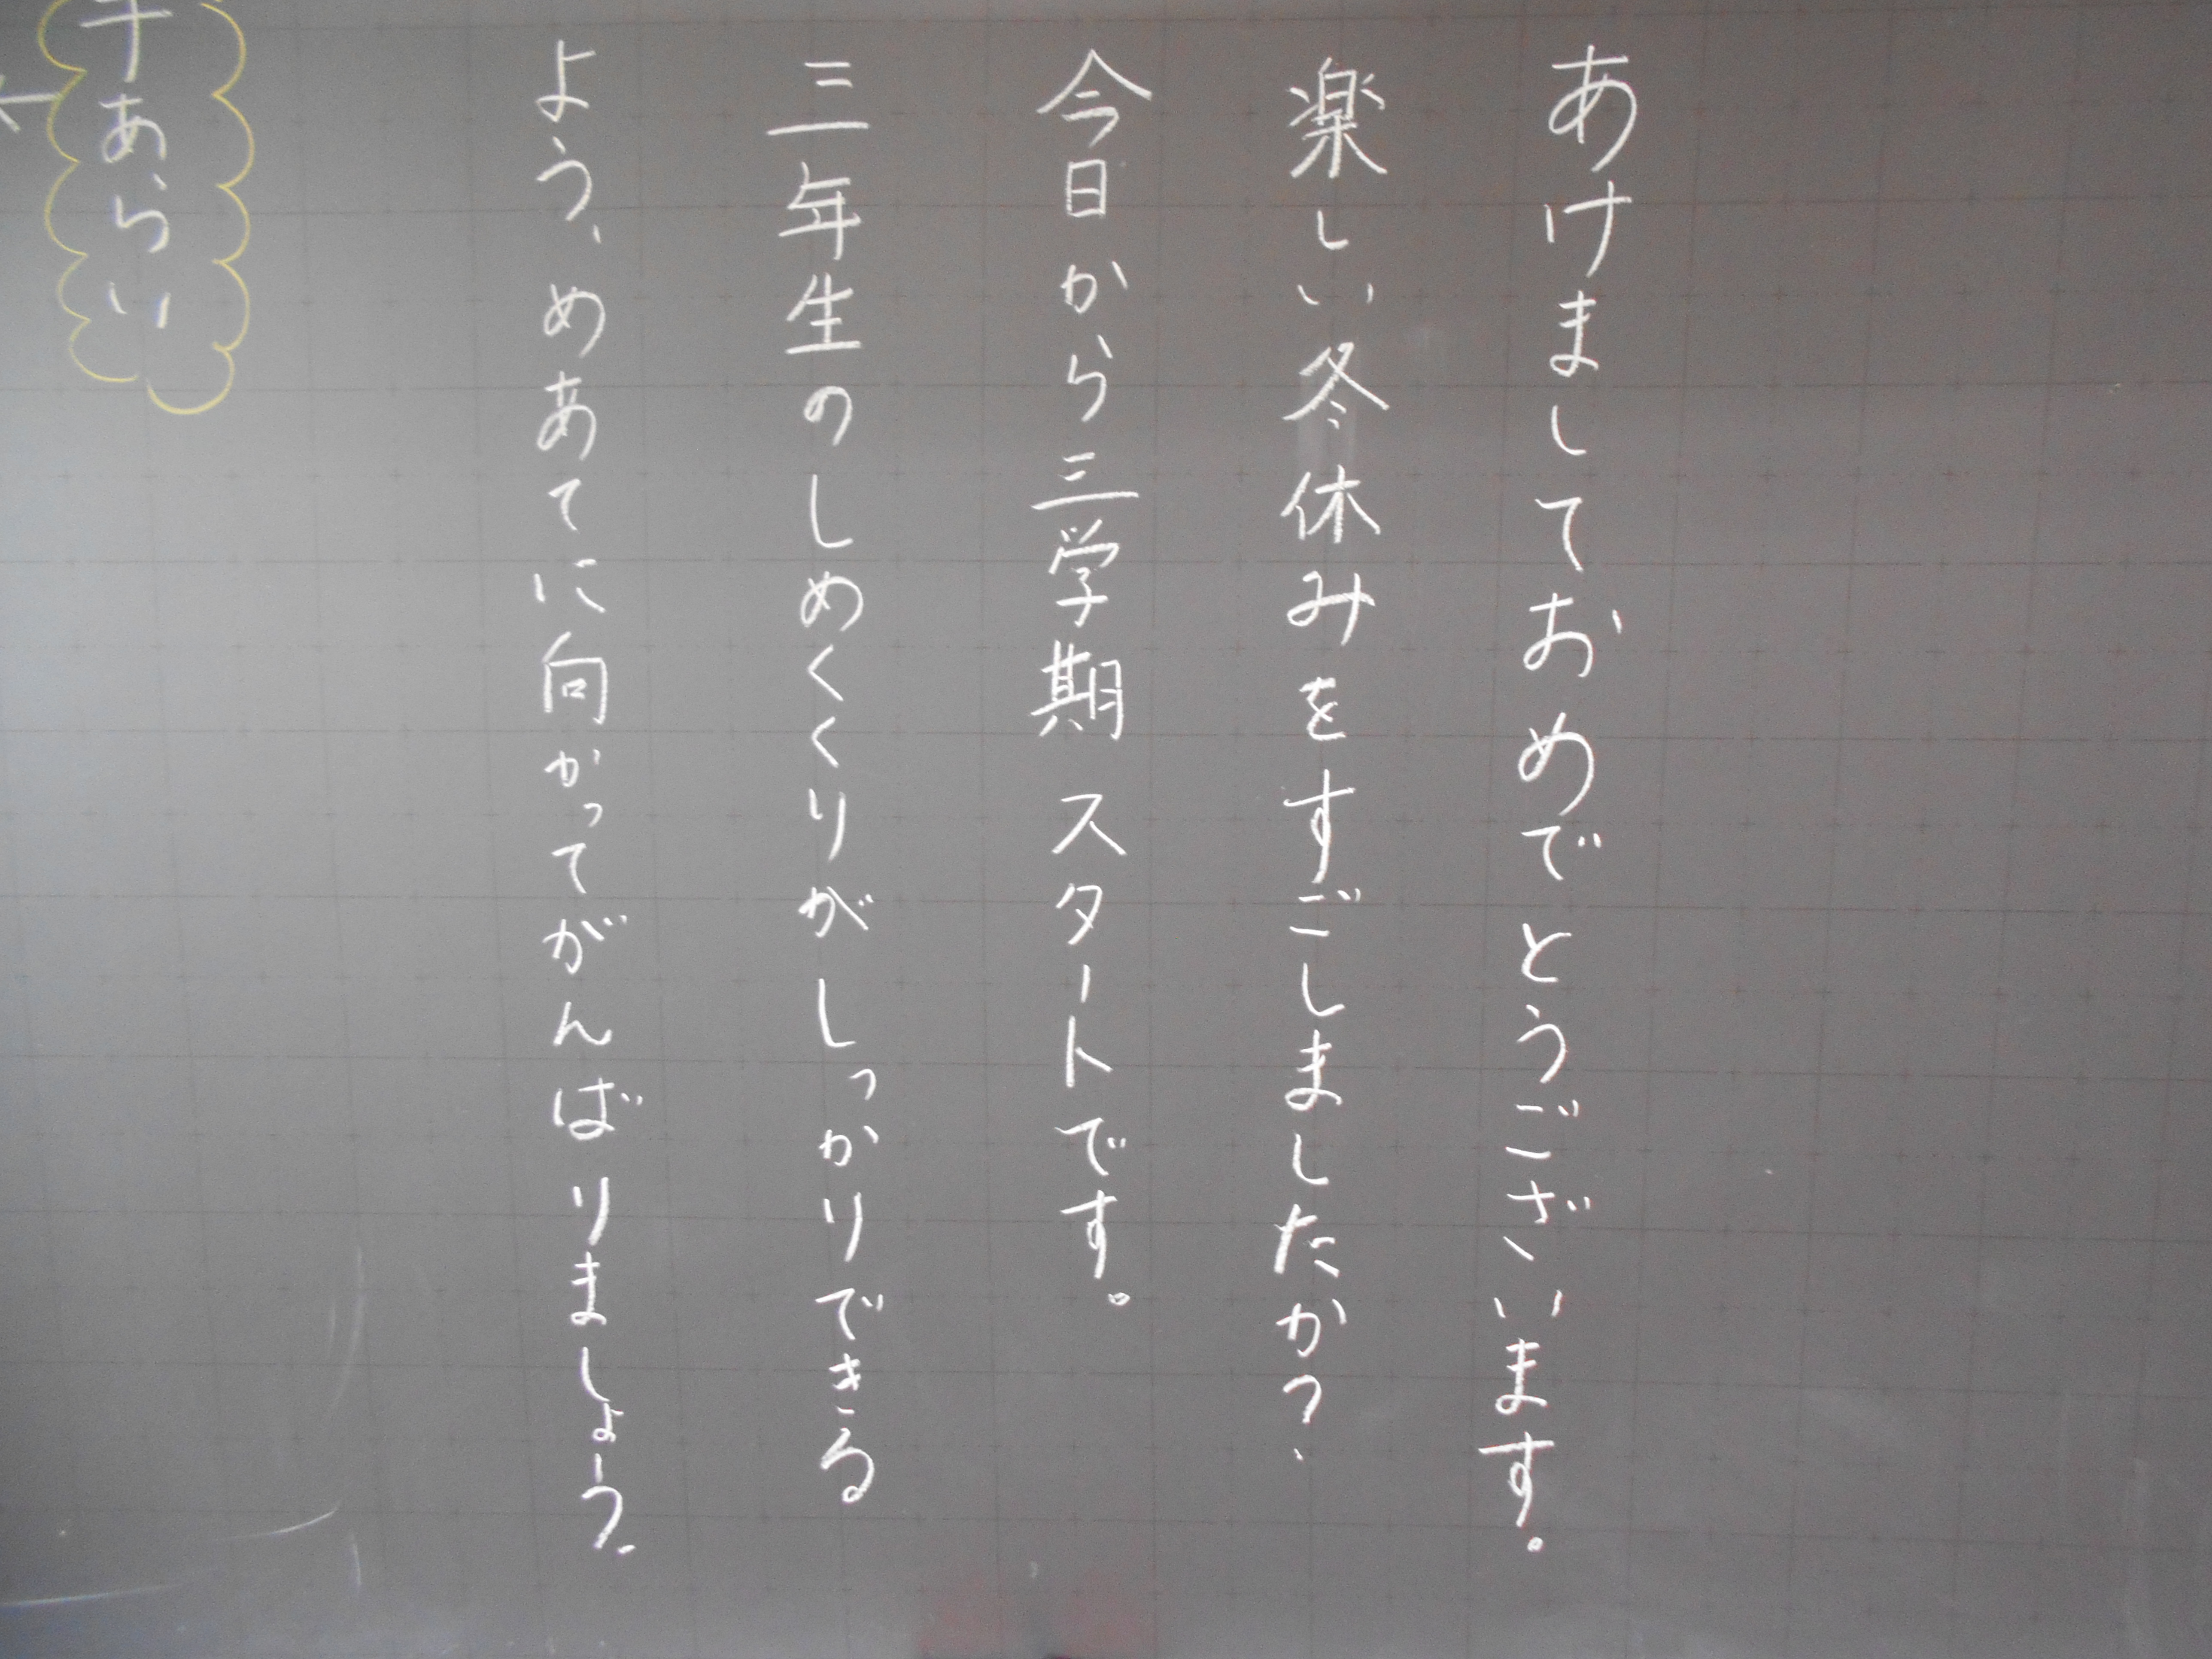 あけましておめでとうございます。
楽しい冬休みをすごしましたか?
今日から三学期スタートです。
三年生のしめくくりがしっかりできる
よう、めあてに向かってがんばりましょう。
手あらい